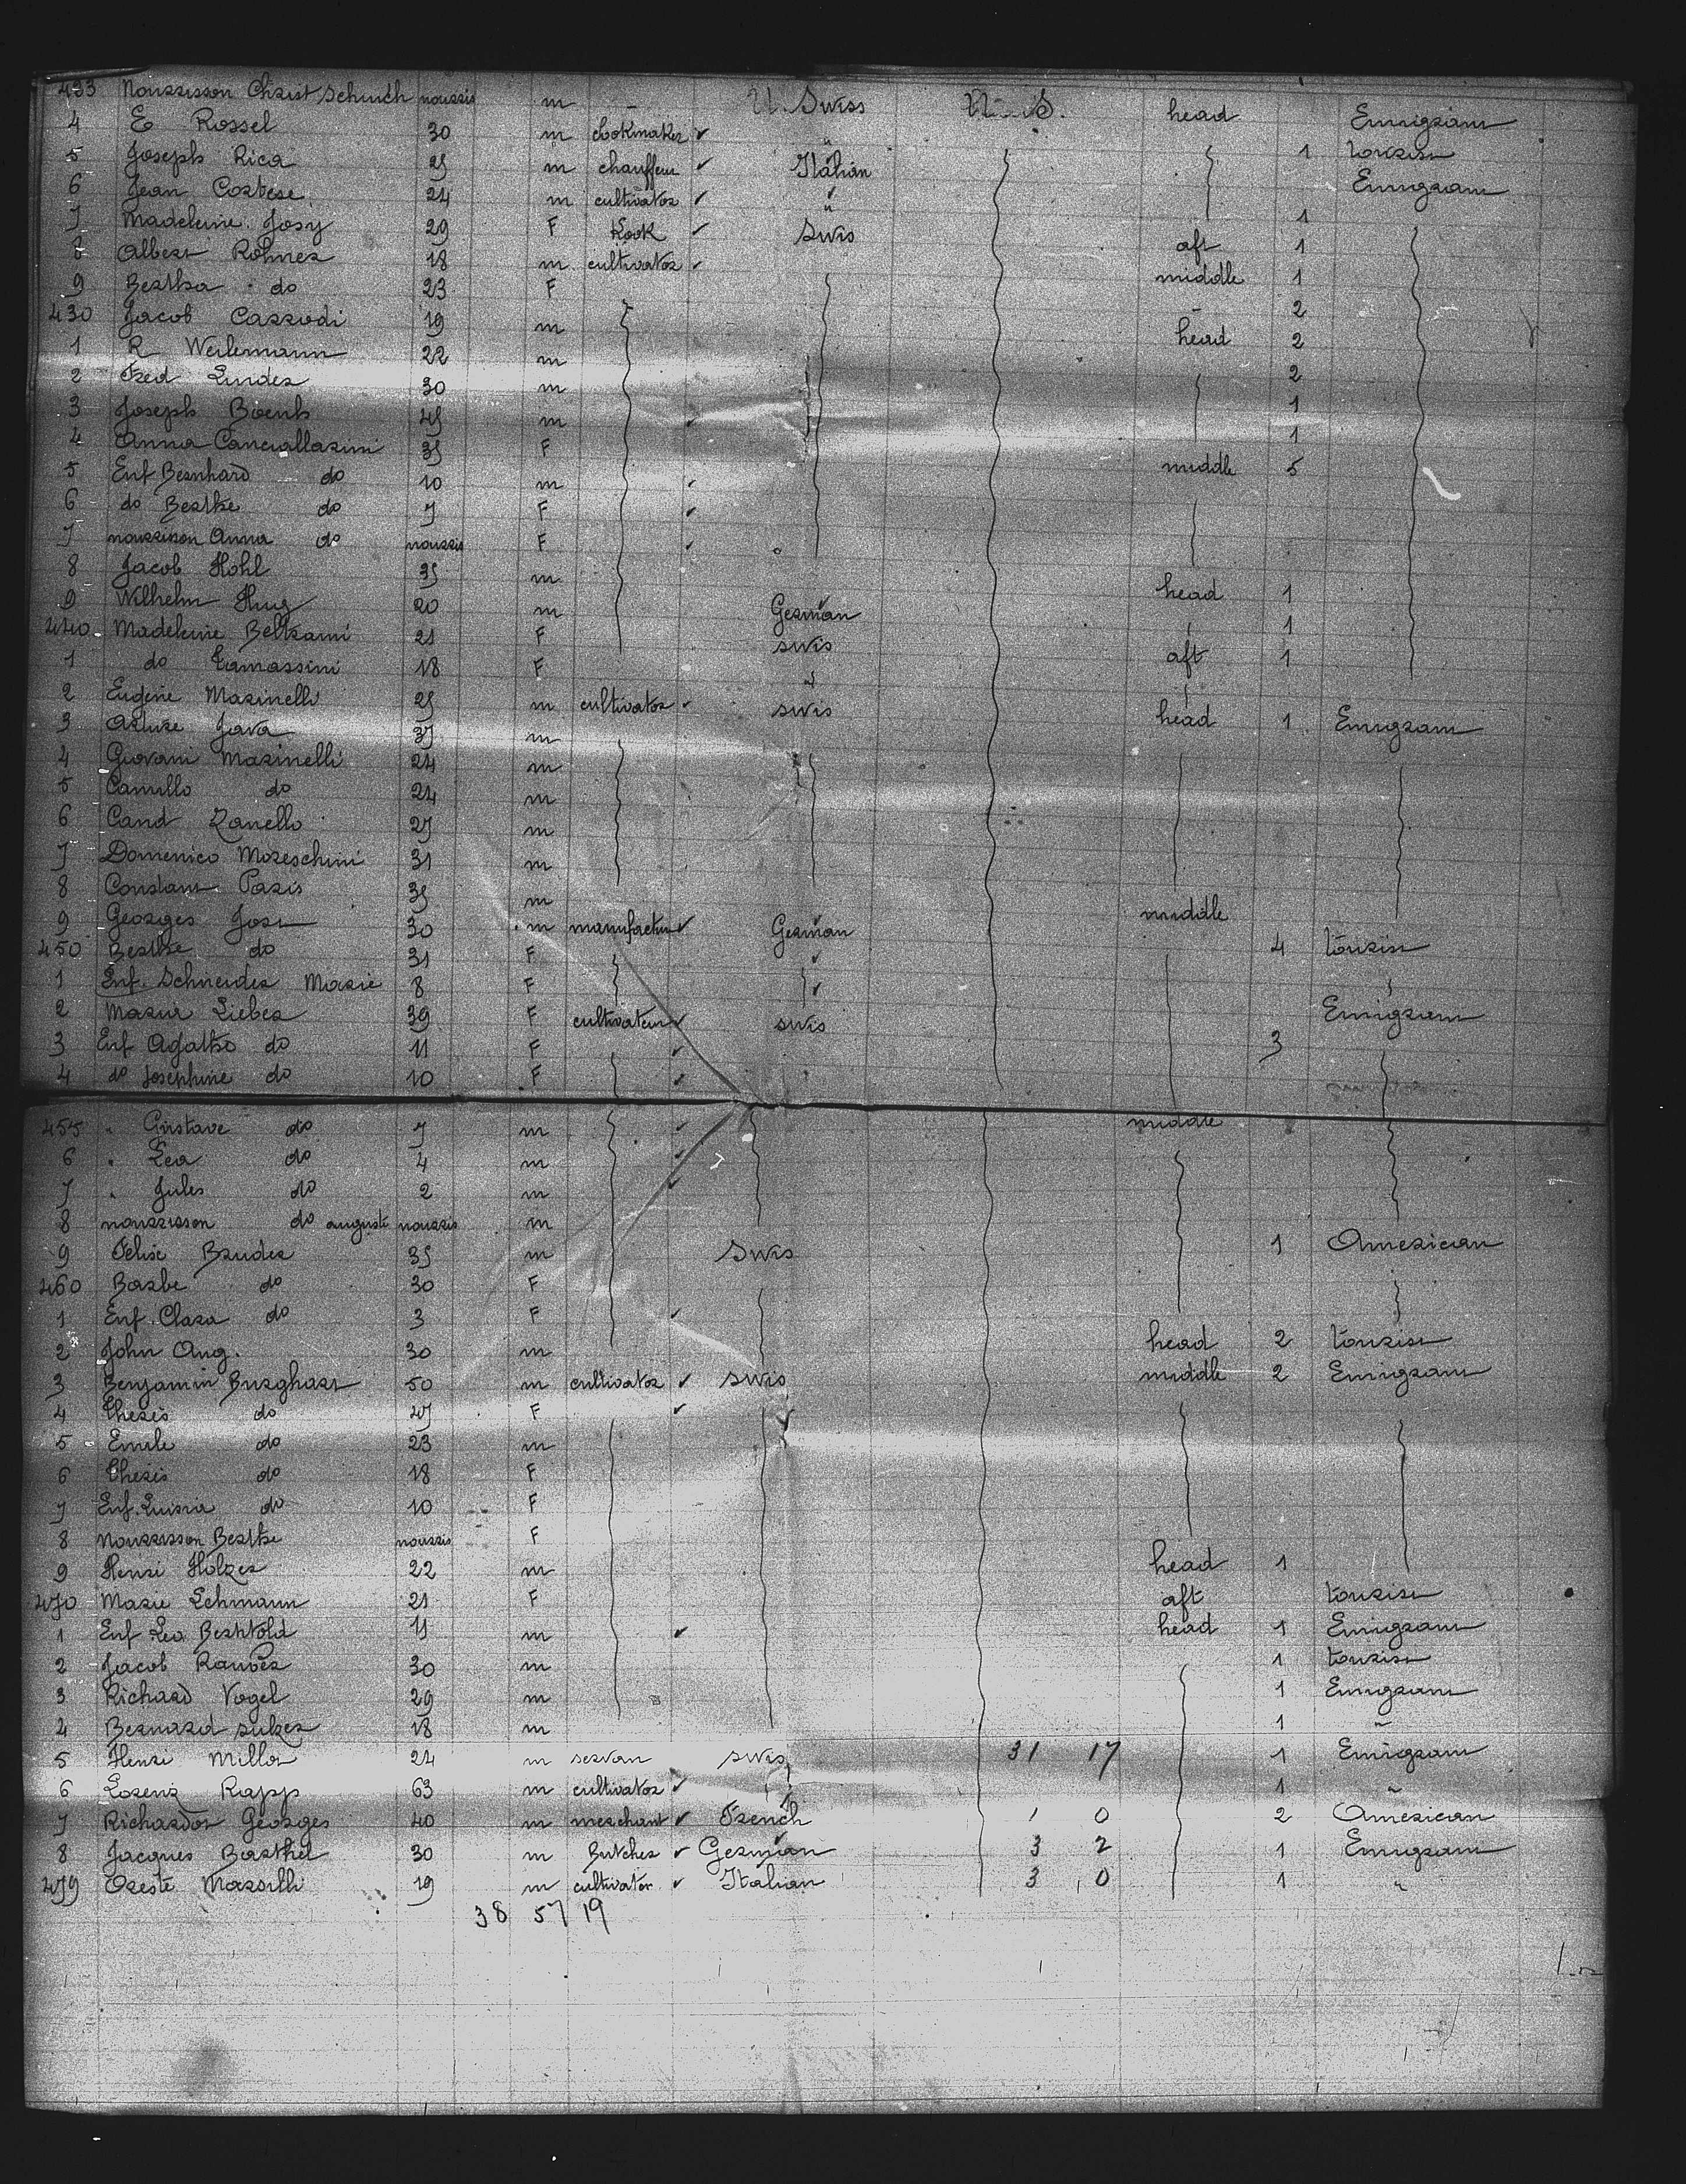 423 Nourrisson Christ Schurch nourris m - U. Swiss U. S. head Emigrant
4 E Rossel 30 m clookmaker " 1 tourist
5 Joseph Rica 25 m chauffeur Italian Emigrant
6 Jean Cortese 24 m cultivator " 1
7 Madeleine Josy 29 F Kook Swis aft 1
8 Albert Rohner 18 m cultivator middle 1
9 Bertha do 23 F 2
430 Jacob Carrodi 19 m head 2
1 R Weilemann 22 m 2
2 Fred Linder 30 m 1
3 Joseph Boenh 45 m 1
4 Anna Canciallarini 35 F middle 5
5 Enf Bernhard do 10 m
6 do Berthe do 7 F
7 nourrisson Anna do nourris F
8 Jacob Hohl 35 m head 1
9 Wilhelm Hug 20 m German 1
440 Madeleine Beltrami 21 F swis aft 1
1 do Tamassini 18 F "
2 Eugene Marinelli 25 m cultivator swis head 1 Emigrant
3 Arture Java 37 m
4 Giovani Marinelli 24 m
5 Camillo do 24 m
6 Cand Zanello 27 m
7 Domenico Moreschini 31 m
8 Constant Paris 35 m
9 Georges Jost 30 m manufactur German middle
450 Berthe do 31 F 4 tourist
1 Enf. Schneider Marie 8 F
2 Maria Lieber 39 F cultivateur swis Emigrant
3 Enf Agatha do 11 F 3
4 do Josephine do 10 F
455 " Gustave do 7 m middle
6 " Lea do 4 m
7 " Jules do 2 m
8 nourrisson do auguste nourris m
9 Felise Bruder 35 m Swis 1 American
460 Barbe do 30 F
1 Enf. Clara do 3 F
2 John Aug. 30 m head 2 tourist
3 Benjamin Burghart 50 m cultivator swis middle 2 Emigrant
4 Theres do 47 F
5 Emile do 23 m
6 Theres do 18 F
7 Enf. Luisa do 10 F
8 nourrisson Berthe nourris F
9 Henri Holzer 22 m head 1
470 Marie Lehmann 21 F aft tourist
1 Enf Leo Berthold 11 m head 1 Emigrant
2 Jacob 30 m 1 tourist
3 Richard Vogel 29 m 1 Emigrant
4 Bernard sulzer 18 m 1 "
5 Henri Millor 24 m servan swis 31 17 1 Emigrant
6 Lorenz Rapp 63 m cultivator 1 "
7 Richardot Georges 40 m merchant French 1 0 2 American
8 Jacques Barthel 30 m Butcher German 3 2 1 Emigrant
479 Oreste Marsilli 19 m cultivator Italian 3 0 1 "
38 57 19